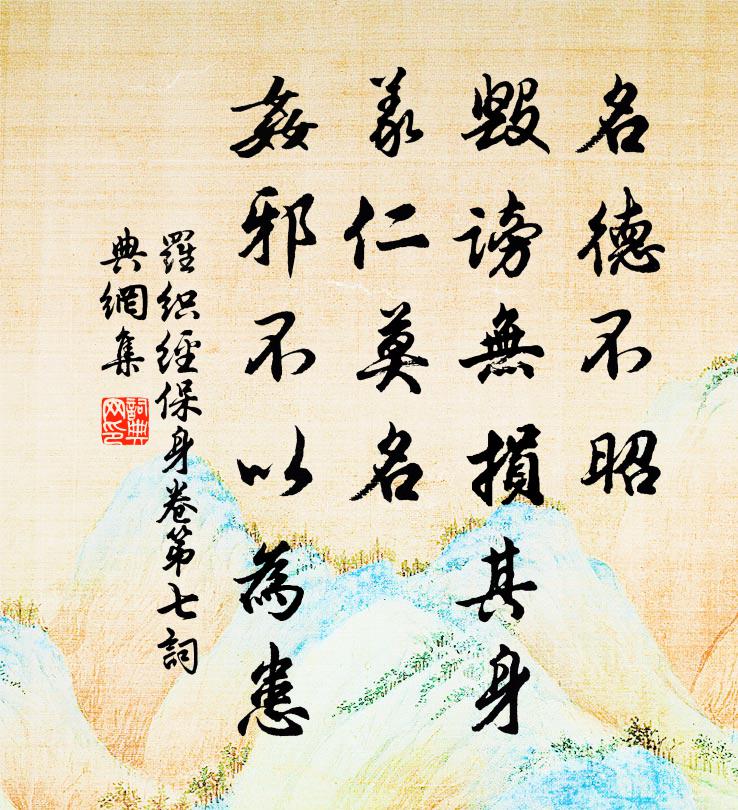 名德不昭
毀謗無損其身
義仁莫名
姦邪不以為患
羅織經保身卷第七詞
典網集
詞典
网印